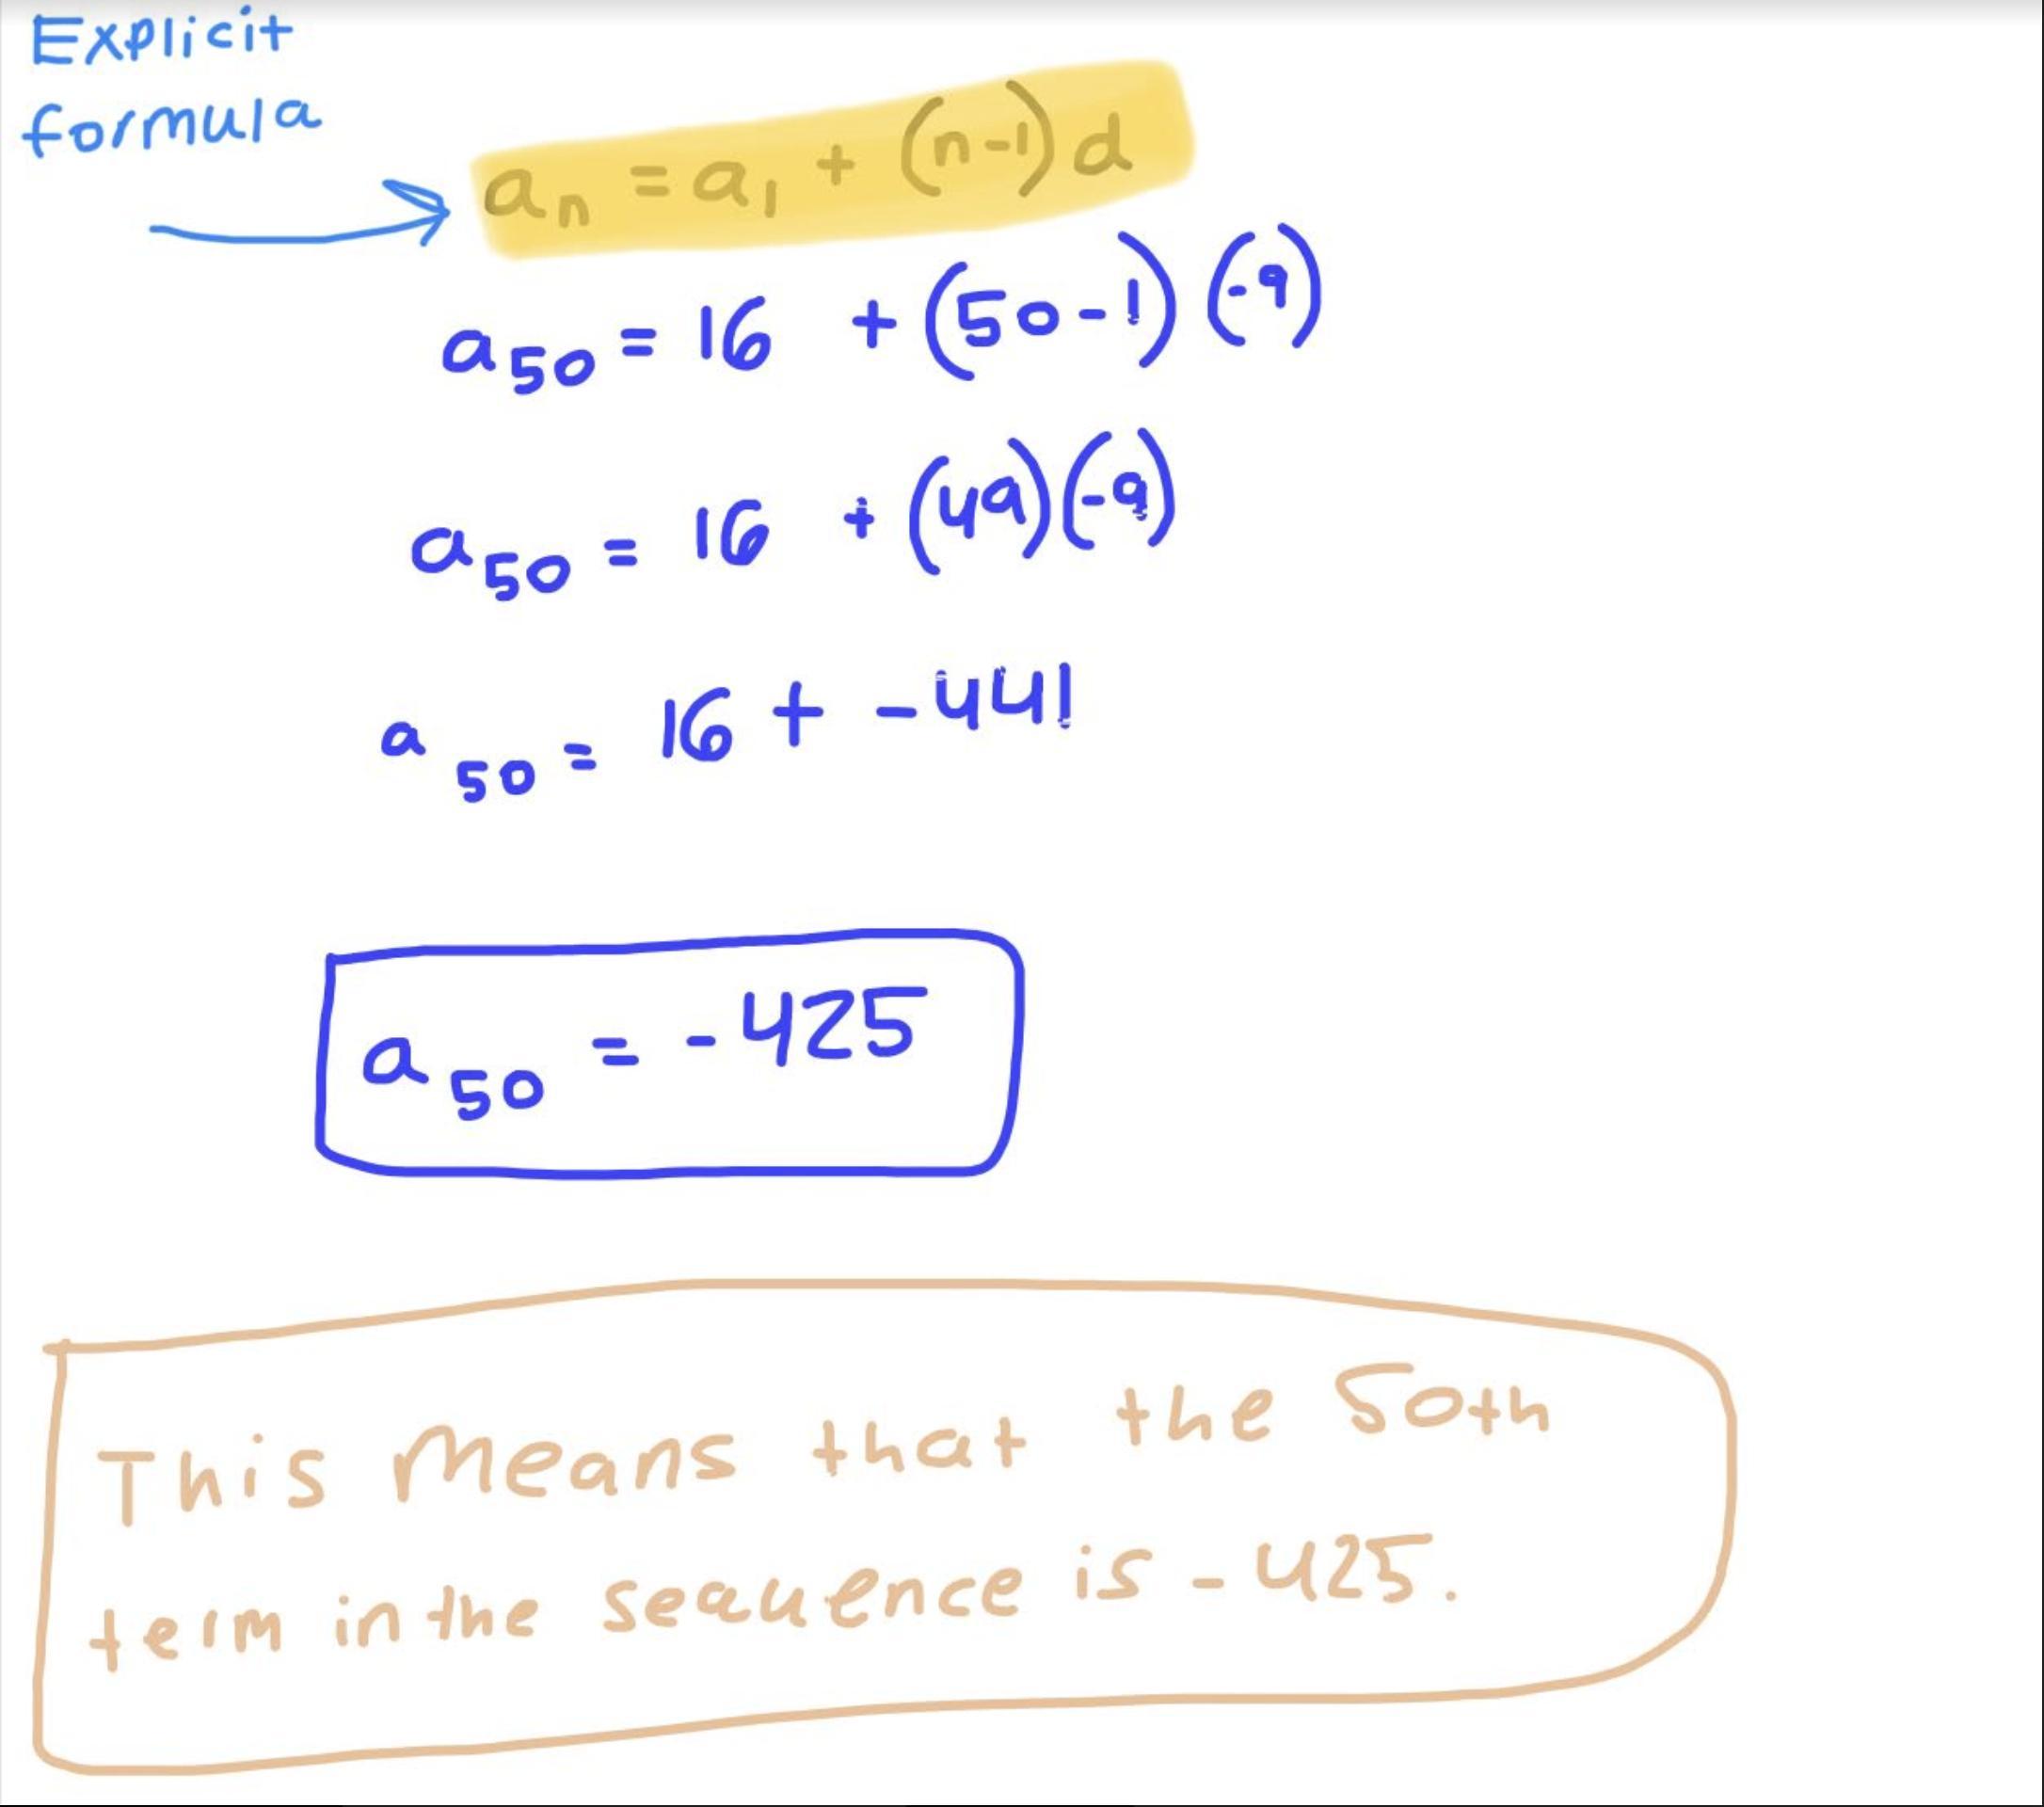 Explicit
formula
aₙ = a₁ + (n-1) d
a₅₀ = 16 + (50-1) (-9)
a₅₀ = 16 + (49)(-9)
a₅₀ = 16 + -441
a₅₀ = -425
This means that the 50th
term in the sequence is -425.